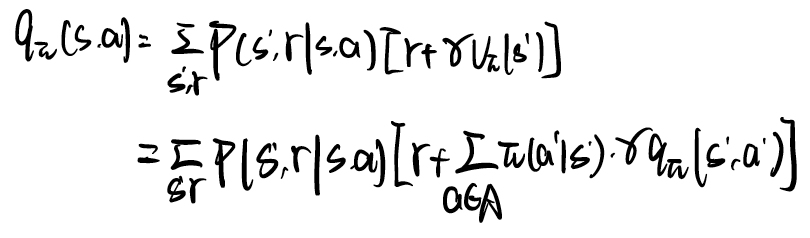 q_π(s,a) = Σ_{s',r} P(s',r|s,a)[r+γV_π(s')]
= Σ_{s'r} P(s',r|s,a)[r+Σ_{a∈A} π(a'|s')·γq_π(s',a')]